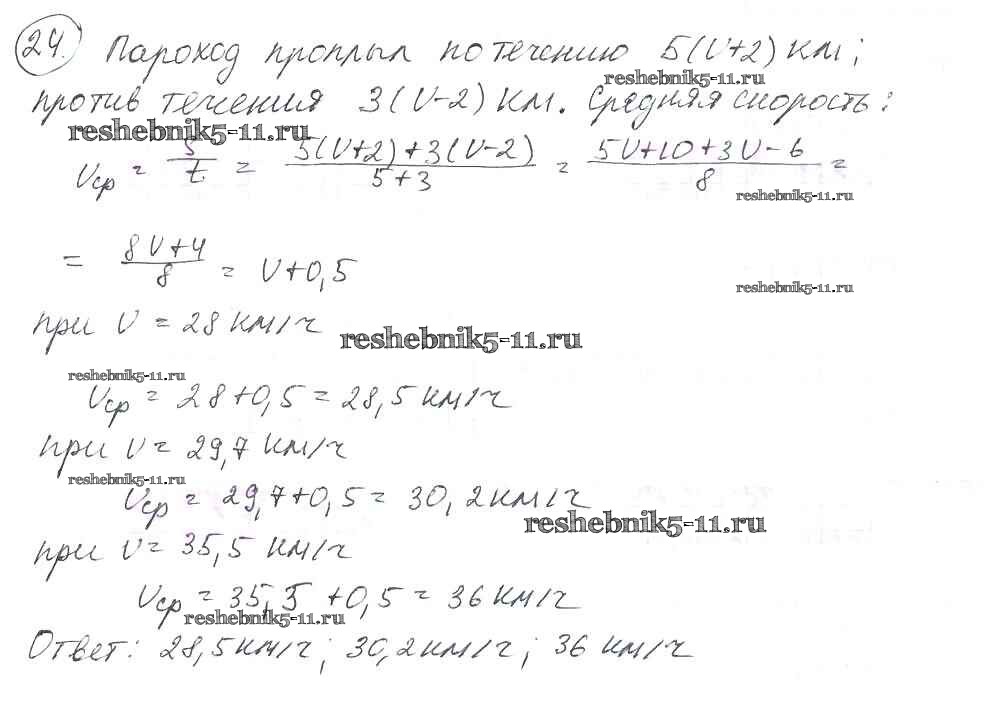 24. Пароход проплыл по течению 5(V+2) км;
reshebnik5-11.ru
против течения 3(V-2) км. Средняя скорость:
reshebnik5-11.ru
Vср = S/t = (5(V+2)+3(V-2))/(5+3) = (5V+10+3V-6)/8 =
reshebnik5-11.ru
= (8V+4)/8 = V+0,5
reshebnik5-11.ru
при V = 28 км/ч
reshebnik5-11.ru
reshebnik5-11.ru
Vср = 28+0,5 = 28,5 км/ч
при V = 29,7 км/ч
reshebnik5-11.ru
Vср = 29,7+0,5 = 30,2 км/ч
reshebnik5-11.ru
при V = 35,5 км/ч
Vср = 35,5 +0,5 = 36 км/ч
reshebnik5-11.ru
Ответ: 28,5 км/ч; 30,2 км/ч; 36 км/ч